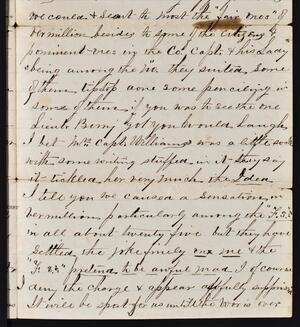 we could & sent to most the "fair ones" of
Vermillion besides to some of the Citizens &
prominent ones in the Co. Capt. & his Lady
being among the no. they suited some
of them tiptop done some penciling in
some of them if you was to see the one
Lieut Berry got you would laugh
I bet Mrs Capt. Williams was a little
with some writing stuffed in it they say
it tickled her very much the Idea
I tell you we caused a sensation in
Vermillion particularly among the
in all about twenty five but they have
settled the joke finely on me & the
pretend to be awful mad I of course
I deny the charge & appear awfully surprised
It will be sport for us until the War is over